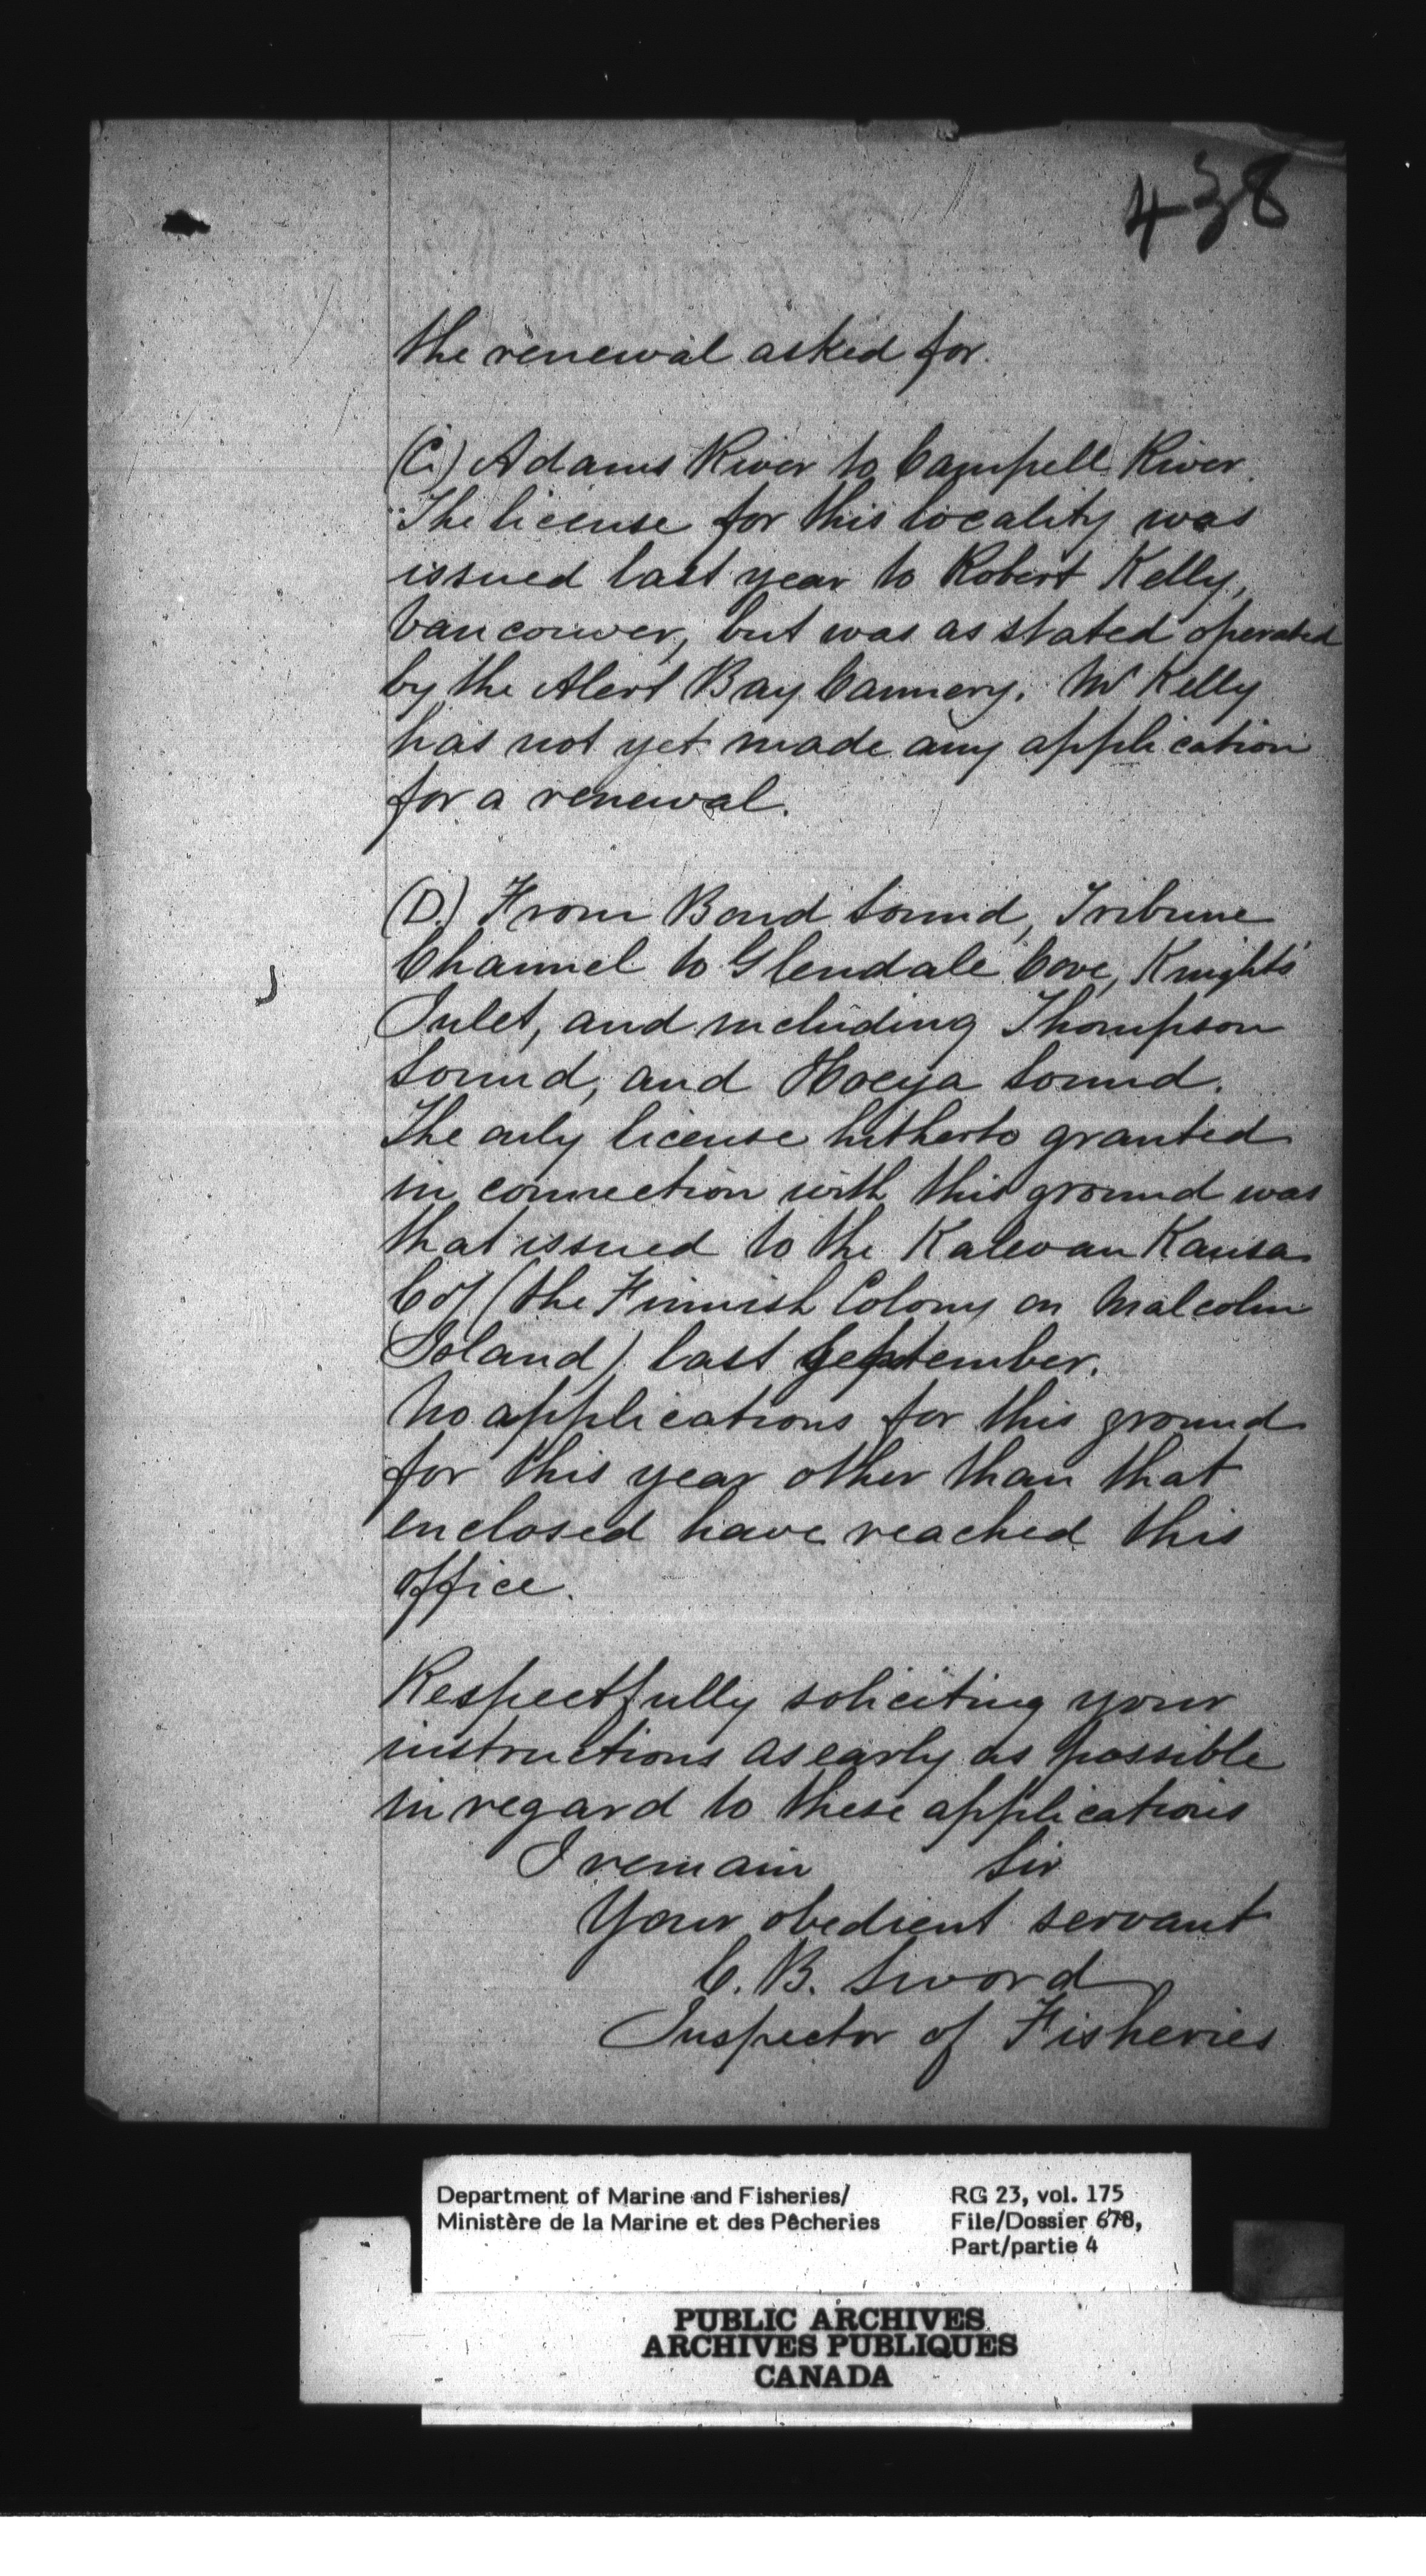 438
the renewal asked for.
(C.) Adams River to Campell River.
The license for this locality was
issued last year to Robert Kelly,
Vancouver, but was as stated operated
by the Alert Bay Cannery. Mr Kelly
has not yet made any application
for a renewal.
(D.) From Bond Sound, Tribune
Channel to Glendale Cove, Knights
Inlet, and including Thompson
Sound, and Hoeya Sound.
The only license hitherto granted
in connection with this ground was
that issued to the Kalevan Kansa
Coy (the Finnish Colony on Malcolm
Island) last September.
No applications for this ground
for this year other than that
enclosed have reached this
office.
Respectfully soliciting your
instructions as early as possible
in regard to these applications
I remain Sir
Your obedient servant
C. B. Sword
Inspector of Fisheries
Department of Marine and Fisheries/
Ministère de la Marine et des Pêcheries
RG 23, vol. 175
File/Dossier 678,
Part/partie 4
PUBLIC ARCHIVES
ARCHIVES PUBLIQUES
CANADA